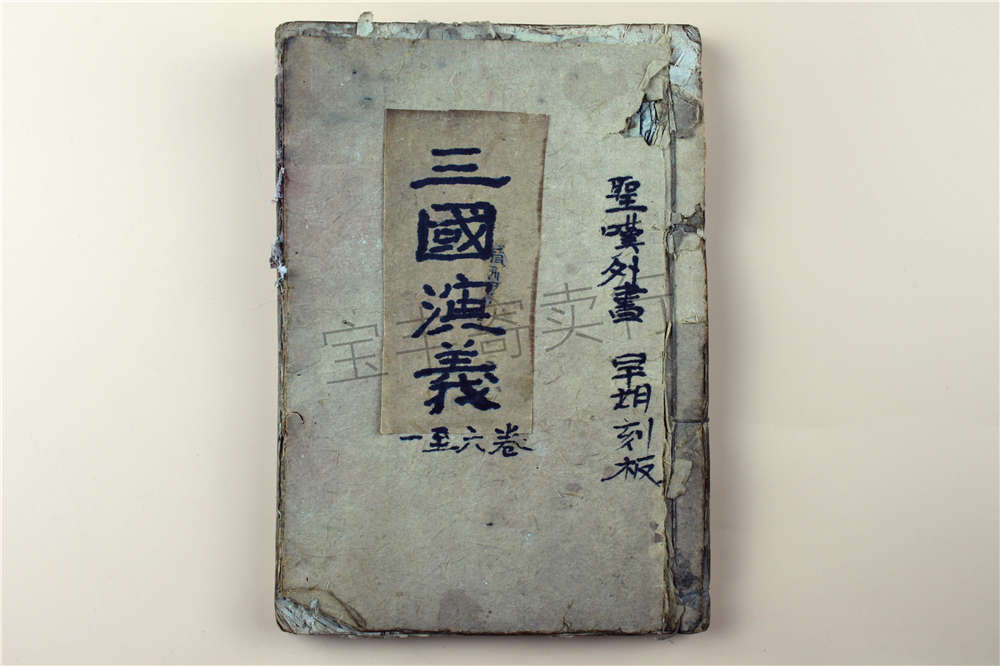 聖嘆外書 早期刻板
三國演義
一至六卷
宝 寄卖